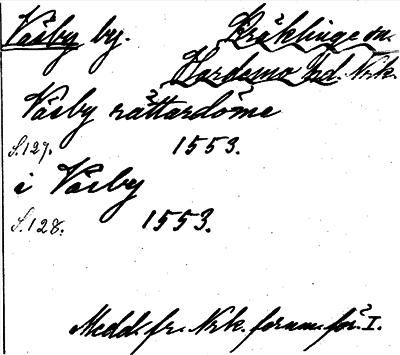 Väsby by. Kräklinge sn.
Hardemo hd. Nrk.
Väsby rättardöme
S. 127. 1553.
i Väsby
S. 128. 1553.
Medd. fr. Nrk. fornm. för. I.